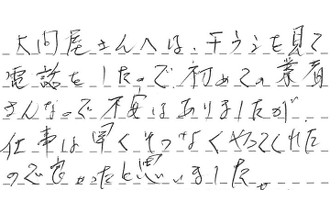 大問屋さんへは、チラシを見て
電話をしたので初めての業者
さんなので不安はありましたが、
仕事は早くそつなくやってくれた
ので良かったと思いました。